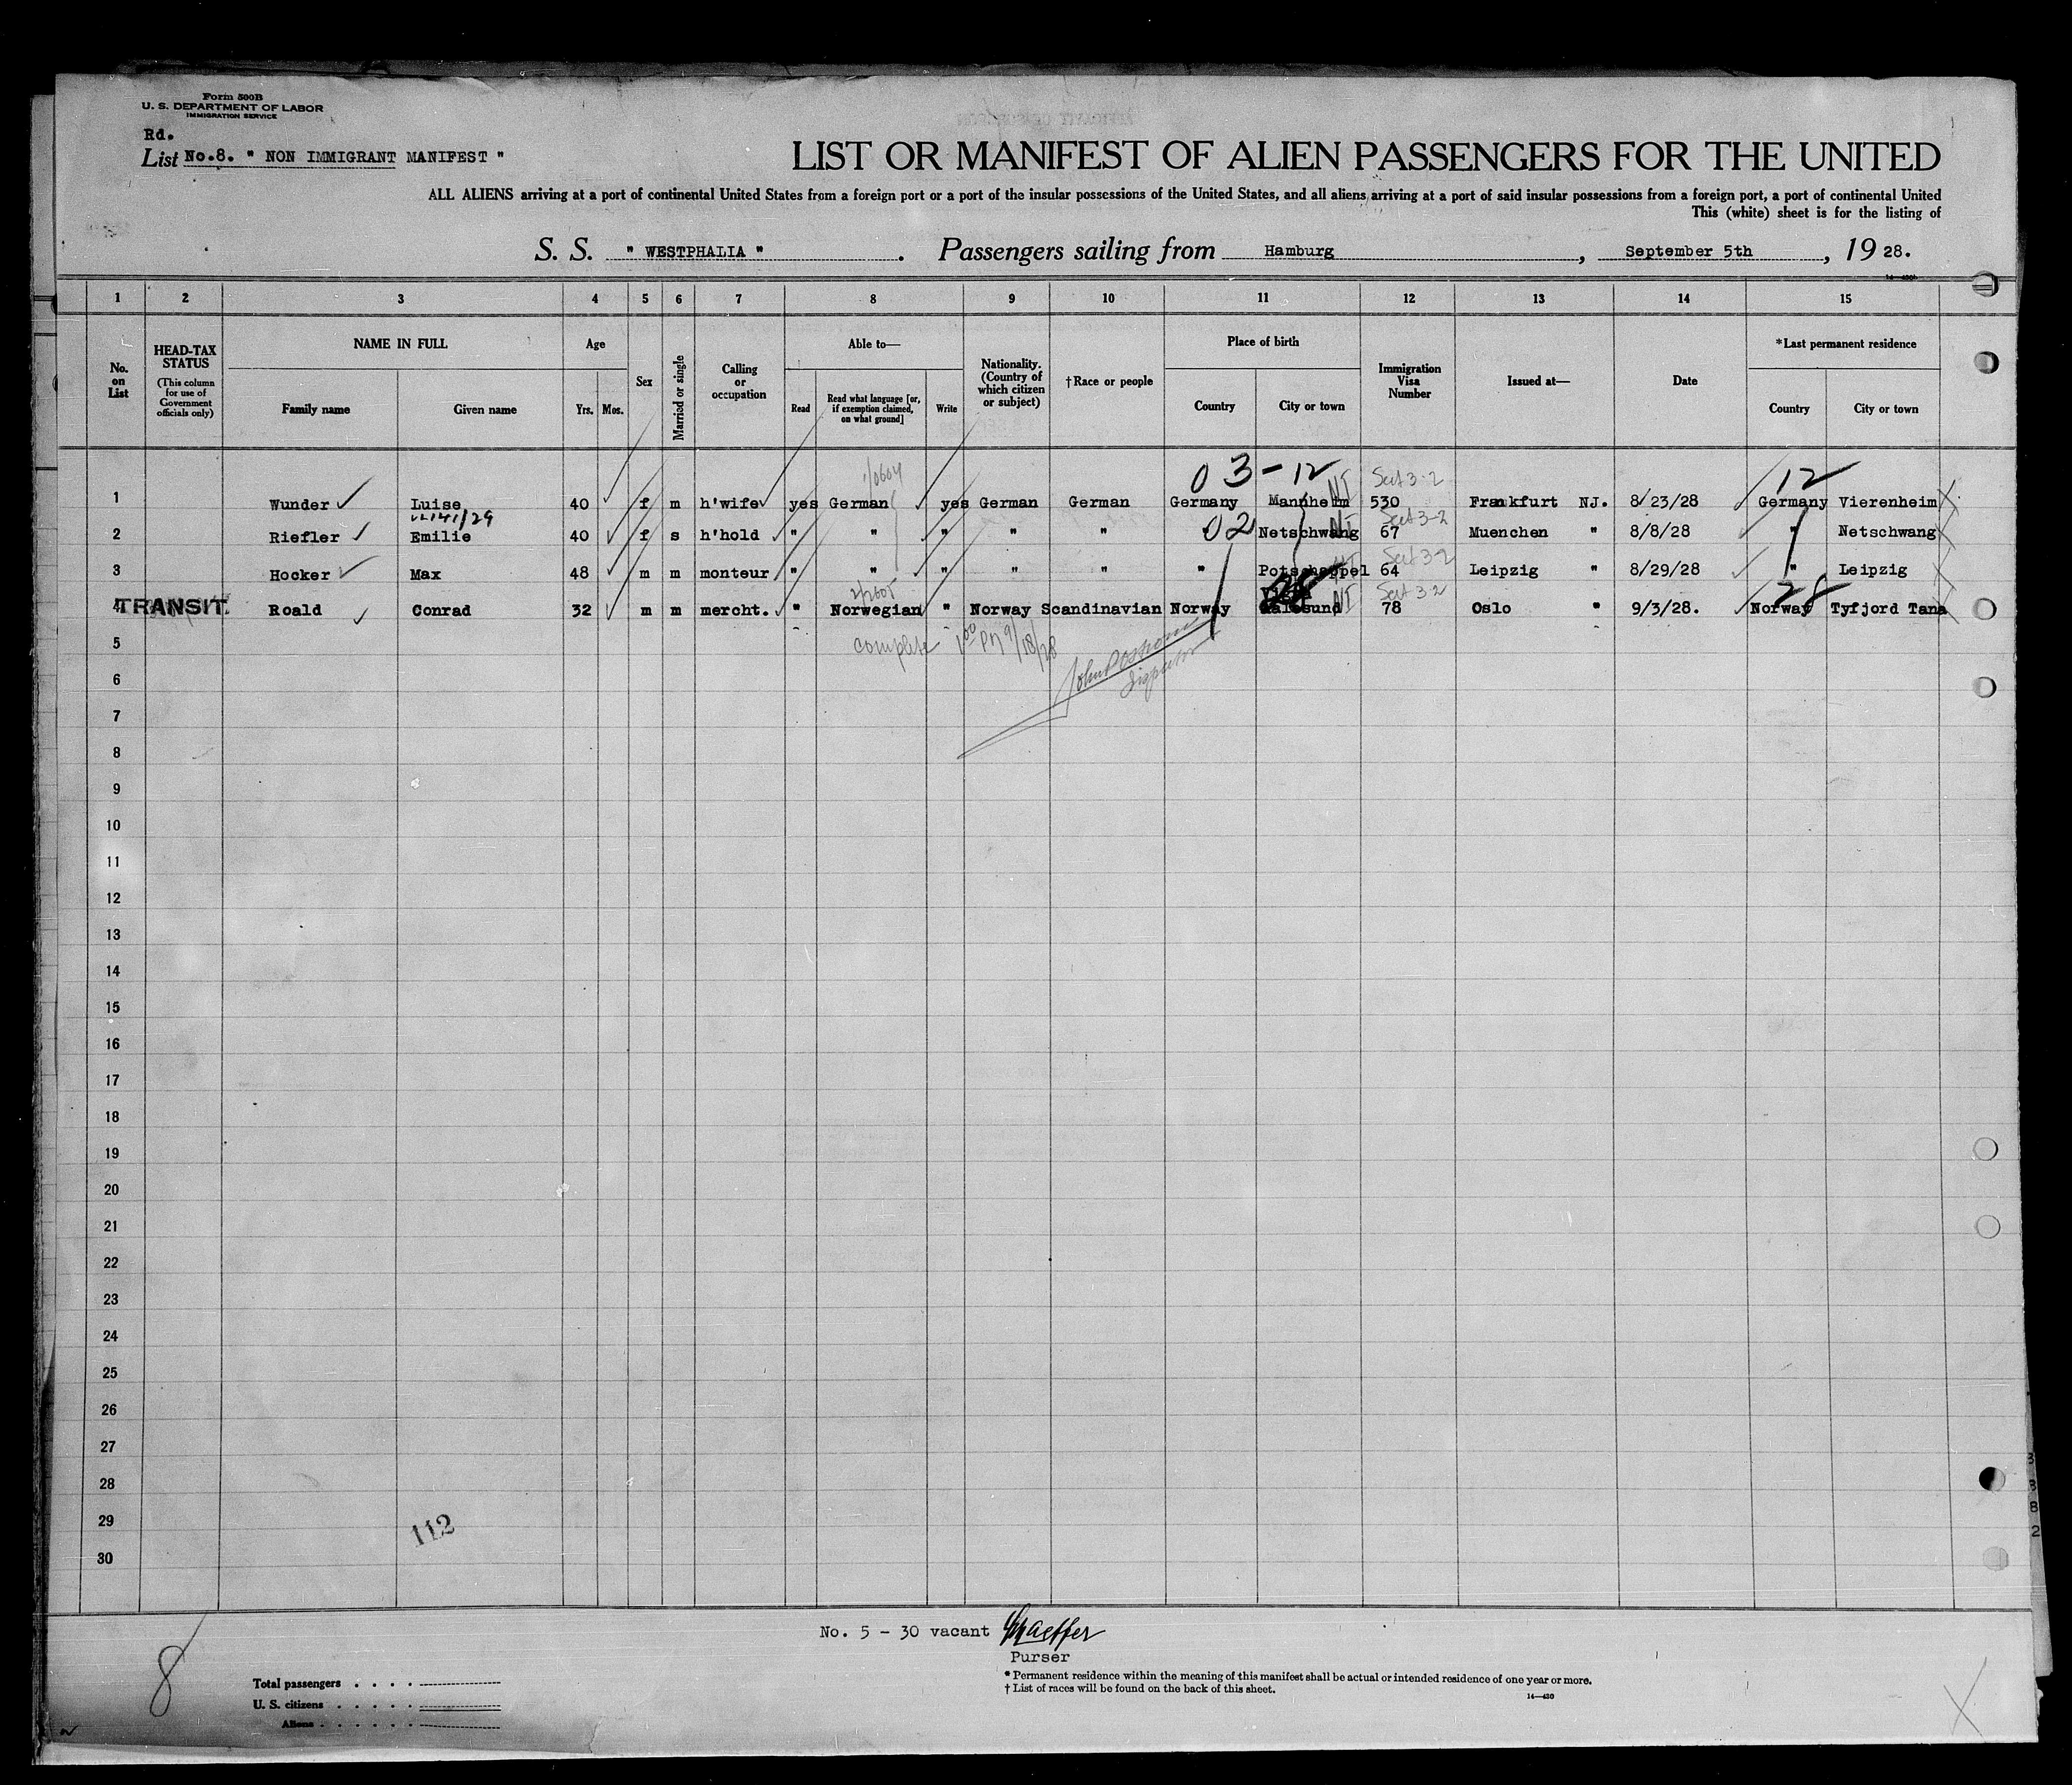 Form 500B
U. S. DEPARTMENT OF LABOR
IMMIGRATION SERVICE
Rd.
List No.8. " NON IMMIGRANT MANIFEST "
LIST OR MANIFEST OF ALIEN PASSENGERS FOR THE UNITED
ALL ALIENS arriving at a port of continental United States from a foreign port or a port of the insular possessions of the United States, and all aliens arriving at a port of said insular possessions from a foreign port, a port of continental United
This (white) sheet is for the listing of
S. S. " WESTPHALIA ". Passengers sailing from Hamburg, September 5th, 1928.
1 2 3 4 5 6 7 8 9 10 11 12 13 14 15
No. on List
HEAD-TAX STATUS (This column for use of Government officials only)
NAME IN FULL
Family name Given name
Age
Yrs. Mos.
Sex
Married or single
Calling or occupation
Able to—
Read Read what language [or, if exemption claimed, on what ground] Write
Nationality. (Country of which citizen or subject)
†Race or people
Place of birth
Country City or town
Immigration Visa Number
Issued at—
Date
*Last permanent residence
Country City or town
03-12 Sect 3-2 12
1 Wunder Luise 40 f m h'wife yes German yes German German Germany Mannheim NI 530 Frankfurt NJ. 8/23/28 Germany Vierenheim
Sect 3-2
2 Riefler Emilie 40 f s h'hold " " " " " " 02 Netschwang NI 67 Muenchen " 8/8/28 " Netschwang
Sect 3-2
3 Hocker Max 48 m m monteur " " " " " " Potschappel 64 Leipzig " 8/29/28 " Leipzig
Sect 3-2 28
4 TRANSIT. Roald Conrad 32 m m mercht. " Norwegian " Norway Scandinavian Norway Aalesund NI 78 Oslo " 9/3/28. Norway Tyfjord Tana
5 complete 1 00 PM 9/18/28
6
7
8
9
10
11
12
13
14
15
16
17
18
19
20
21
22
23
24
25
26
27
28
29 112
30
No. 5 - 30 vacant
Purser
8
Total passengers
U. S. citizens
Aliens
* Permanent residence within the meaning of this manifest shall be actual or intended residence of one year or more.
† List of races will be found on the back of this sheet.
14—430